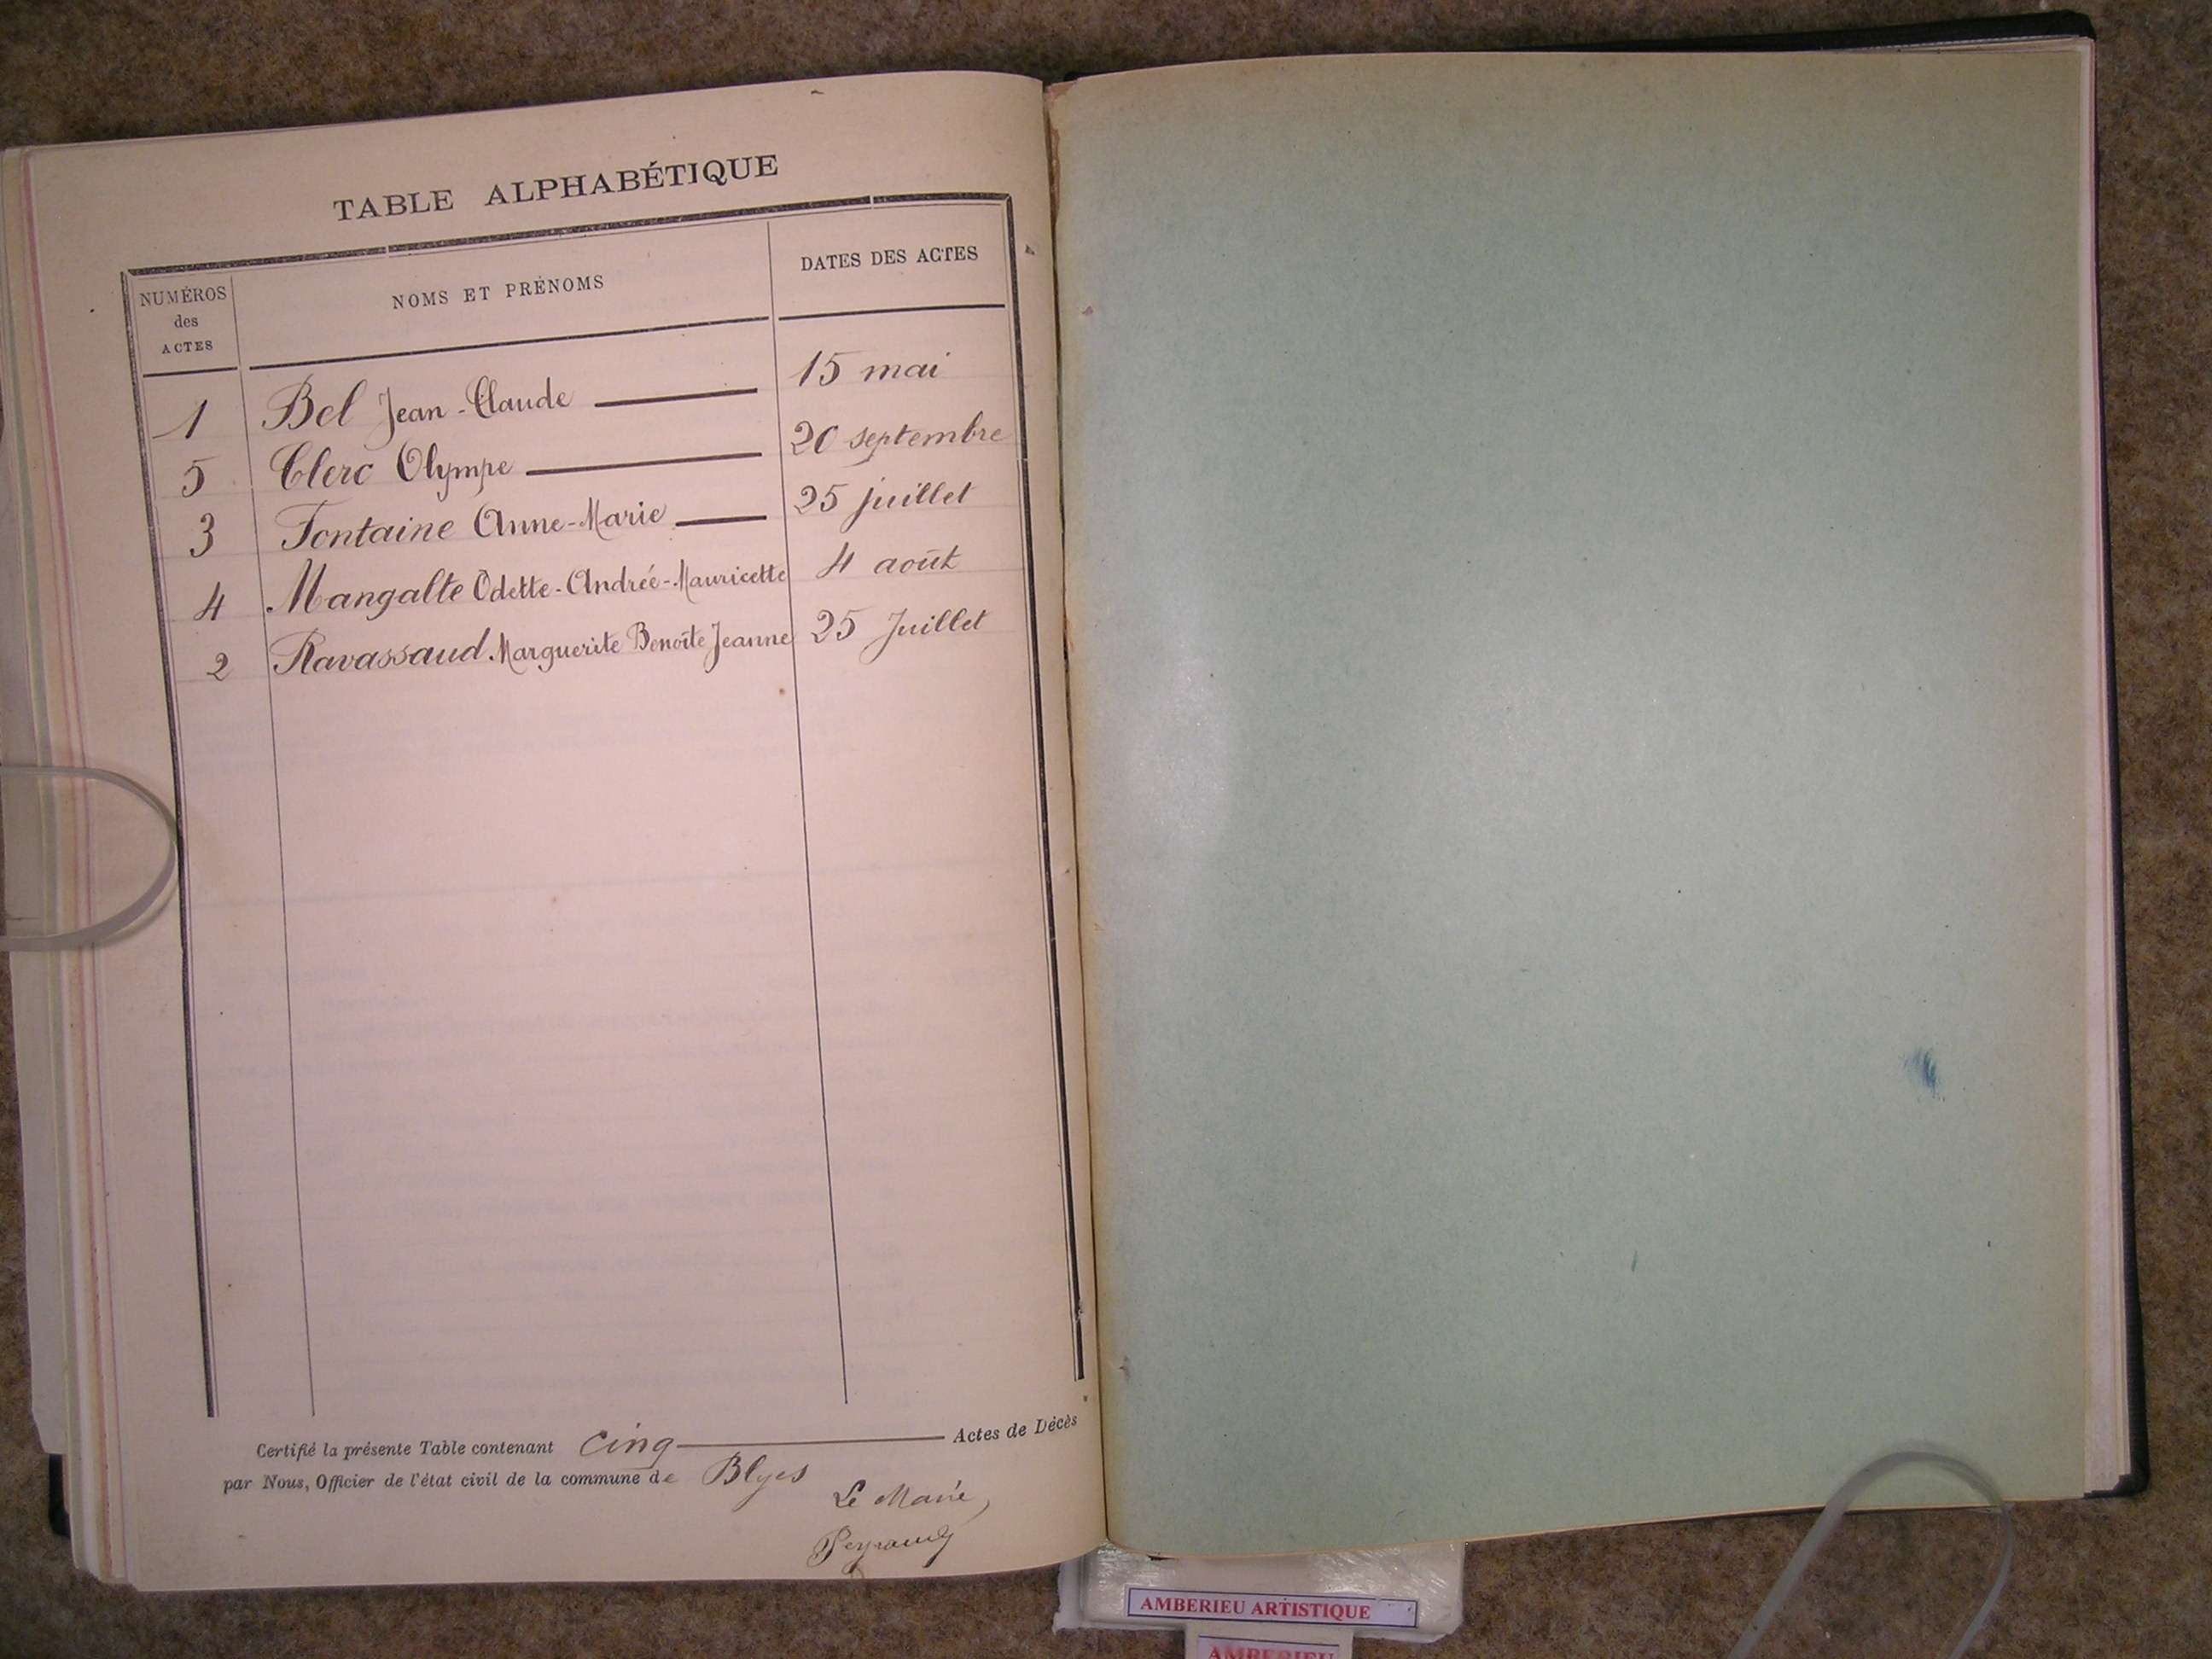 TABLE ALPHABÉTIQUE
NUMÉROS
des
ACTES
NOMS ET PRÉNOMS
DATES DES ACTES
1 Bel Jean-Claude 15 mai
5 Clerc Olympe 20 septembre
3 Fontaine Anne-Marie 25 juillet
4 Mangalte Odette-Andrée-Mauricette 4 août
2 Ravassaud Marguerite Benoîte Jeanne 25 Juillet
Certifié la présente Table contenant cinq Actes de Décès
par Nous, Officier de l'état civil de la commune de Blyes
Le Maire,
Peyraud
AMBERIEU ARTISTIQUE
AMBERIEU